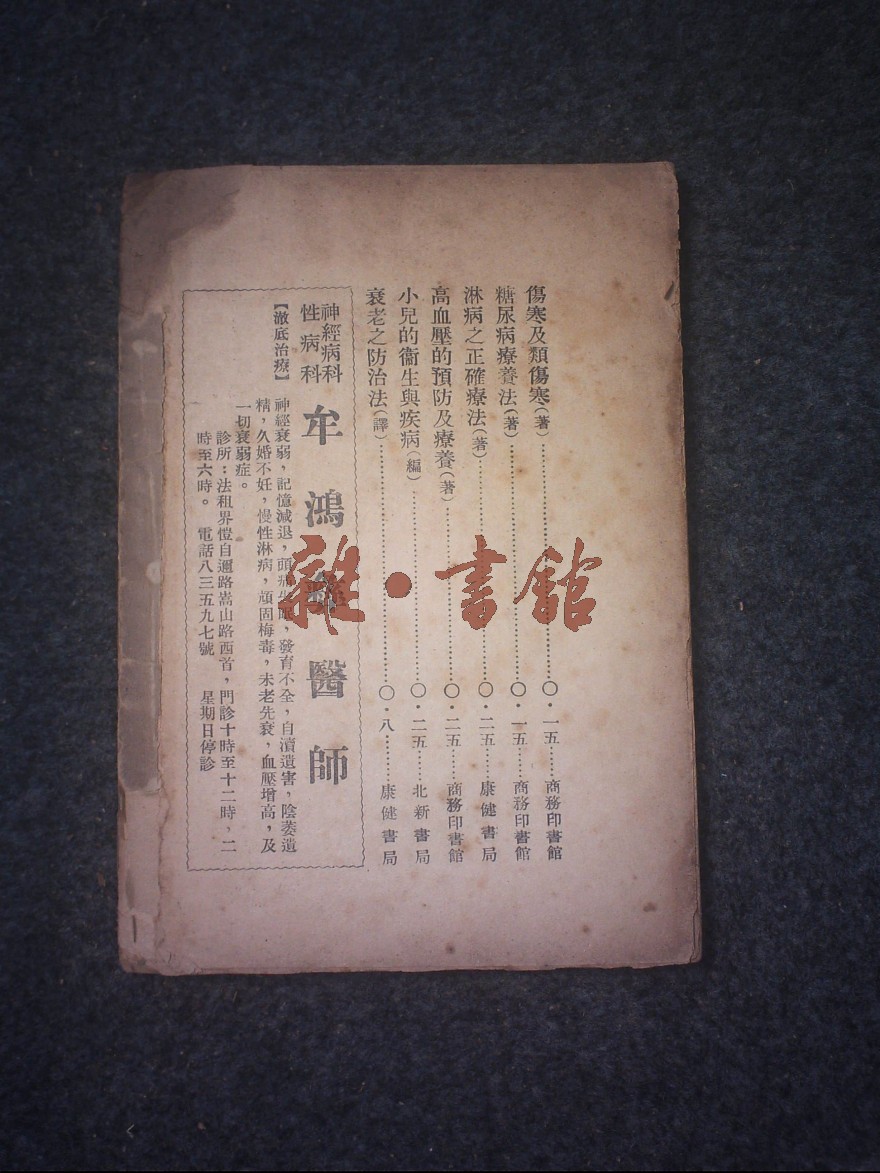 傷寒及類傷寒(著)……〇·一五……商務印書館
糖尿病療養法(著)……〇·一五……商務印書館
淋病之正確療法(著)……〇·二五……康健書局
高血壓的預防及療養(著)……〇·二五……商務印書館
小兒的衞生與疾病(編)……〇·二五……北新書局
衰老之防治法(譯)……〇·八……康健書局
神經病科
性病科
牟鴻 醫師
【澈底治療】
神經衰弱,記憶減退,頭 ,發育不全,自瀆遺害,陰萎遺
精,久婚不妊,慢性淋病,頑固梅毒,未老先衰,血壓增高,及
一切衰弱症。
診所:法租界愷自邇路嵩山路西首,門診十時至十二時,二
時至六時。 電話八三五九七號 星期日停診
雜·書館